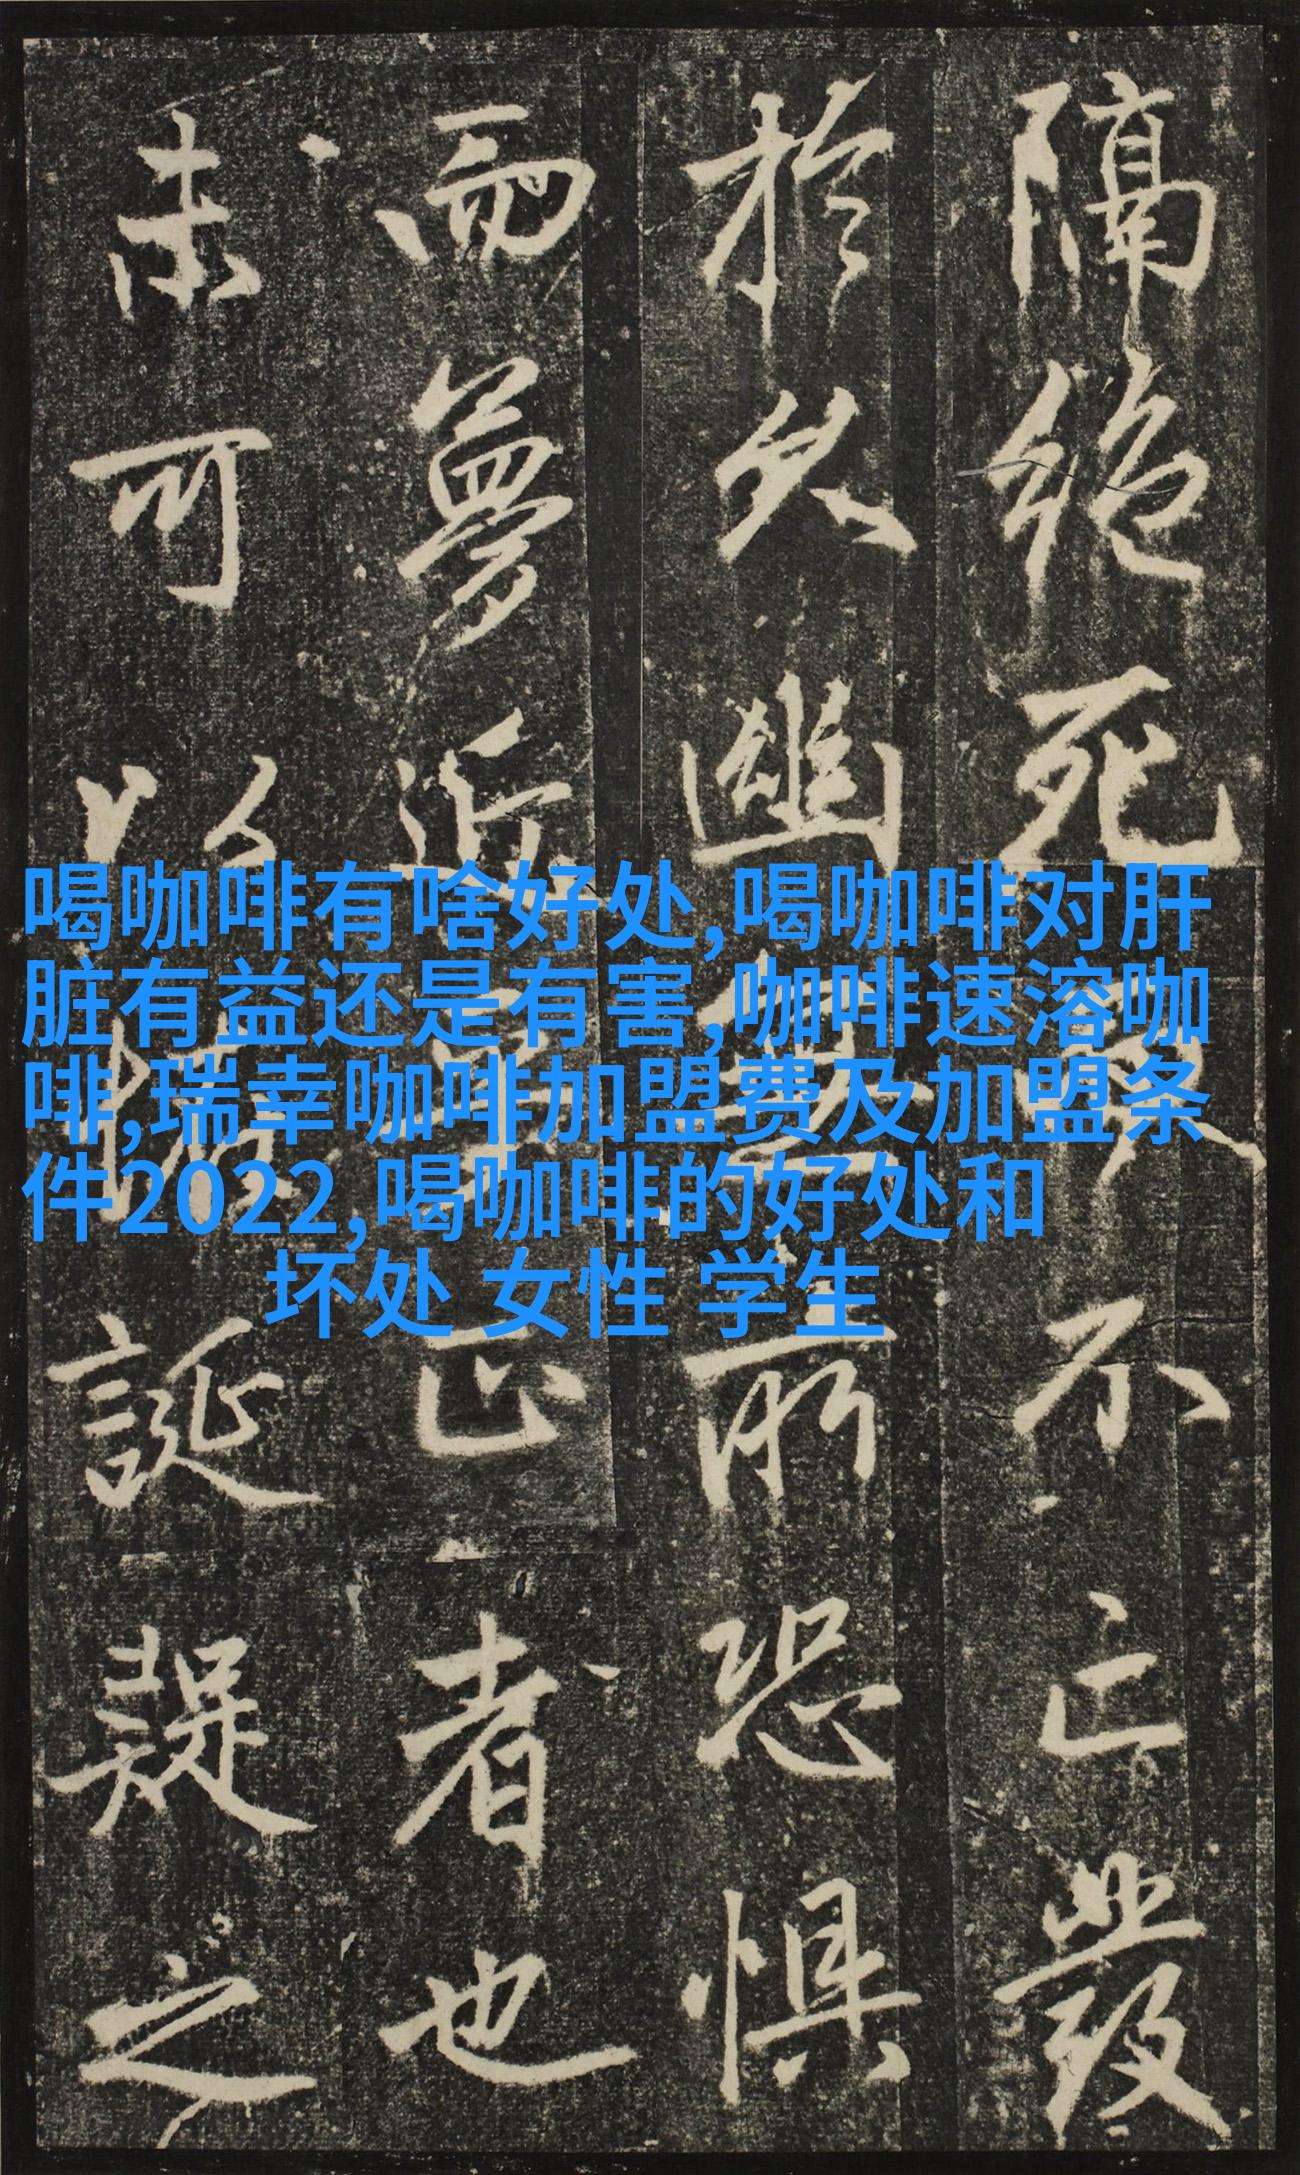 隔絶死不亡發
於久幽無所恐懼
而夢近至正者也
未可以怪誕疑之
喝咖啡有啥好处,喝咖啡对肝
脏有益还是有害,咖啡速溶咖
啡,瑞幸咖啡加盟费及加盟条
件2022,喝咖啡的好处和
坏处 女性 学生